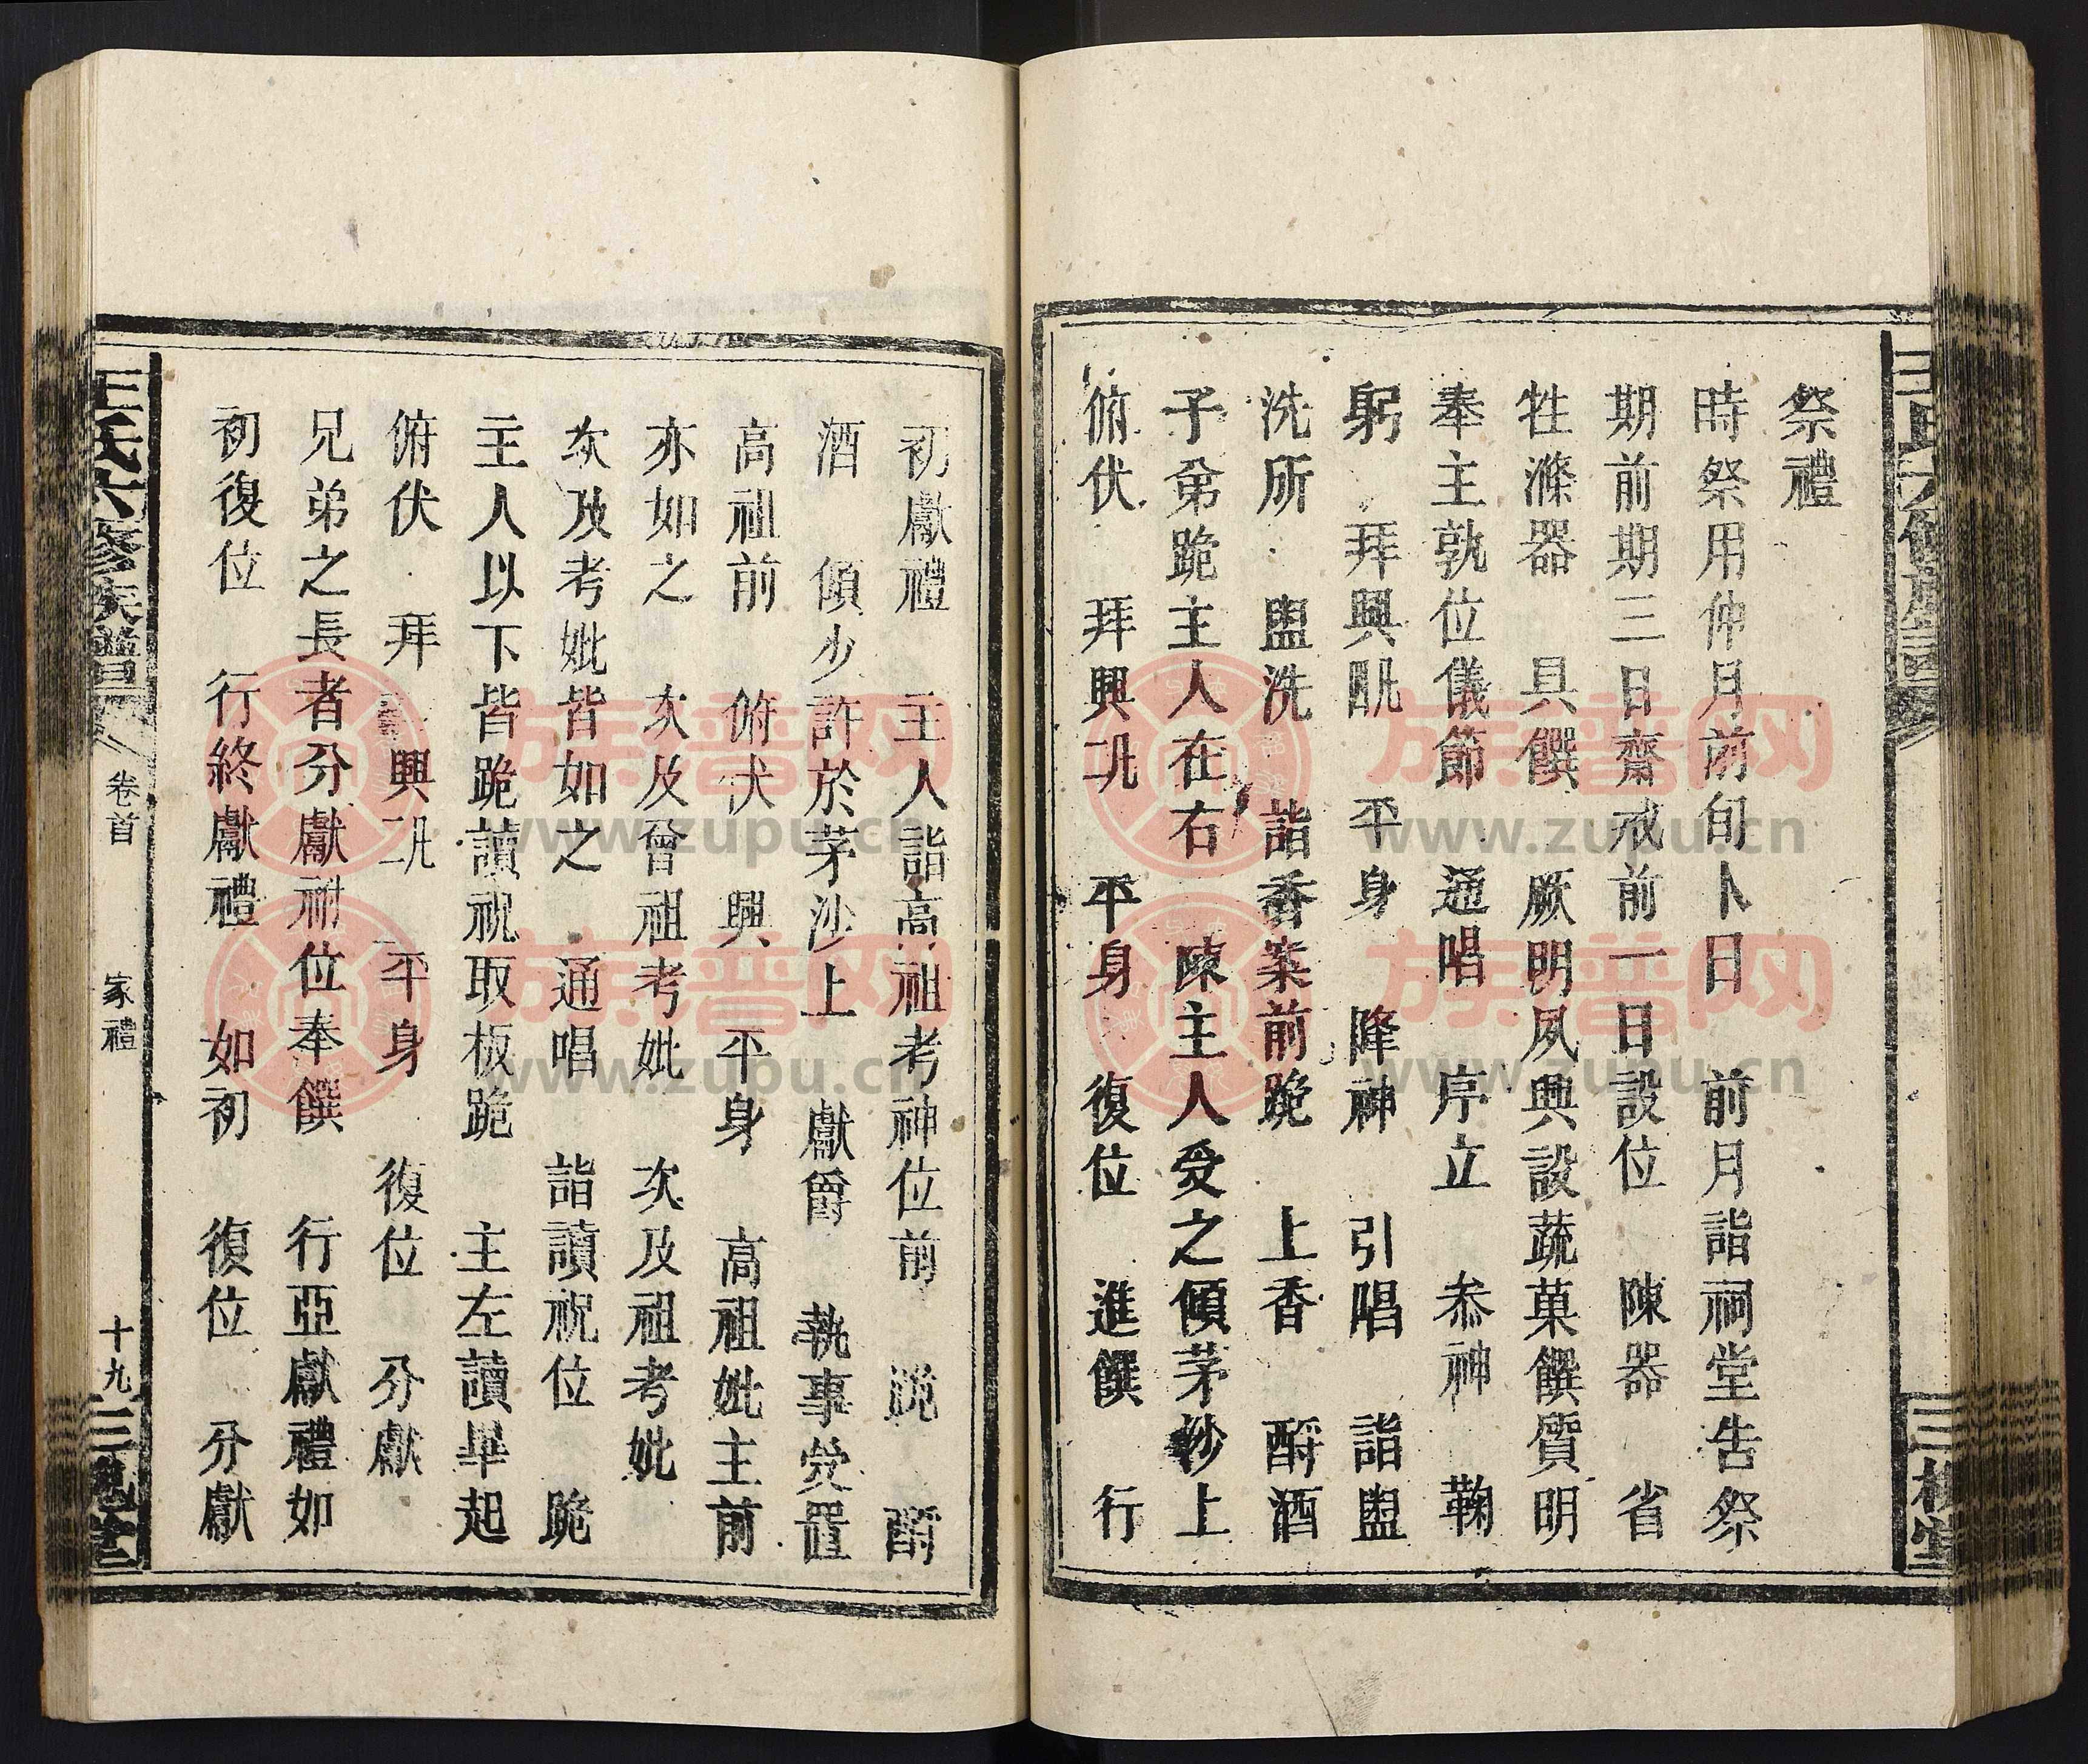 祭禮
時祭用仲月前旬卜日　前月詣祠堂告祭
期前期三日齋戒前一日設位　陳器　省
牲滌器　具饌　厥明夙興設蔬菓饌質明
奉主孰位儀節　通唱　序立　叅神　鞠
躬　拜興凡四　平身　降神　引唱　詣盥
洗所　盥洗　詣香案前跪　上香　酹酒
子弟跪主人在右　陳主人受之傾茅沙上
俯伏　拜興凡二　平身　復位　進饌　行
初獻禮　主人詣高祖考神位前　跪　酹
酒　傾少許於茅沙上　獻爵　執事受置
高祖前　俯伏　興　平身　高祖妣主前
亦如之　次及曾祖考妣　次及祖考妣
次及考妣皆如之　通唱　詣讀祝位　跪
主人以下皆跪讀祝取板跪　主左讀畢起
俯伏　拜　興凡二　平身　復位　分獻
兄弟之長者分獻祔位奉饌　行亞獻禮如
初復位　行終獻禮　如初　復位　分獻
王氏六修族譜
卷首
家禮
十九
三槐堂
族譜网
www.zupu.cn
族譜网
www.zupu.cn
族譜网
www.zupu.cn
族譜网
www.zupu.cn